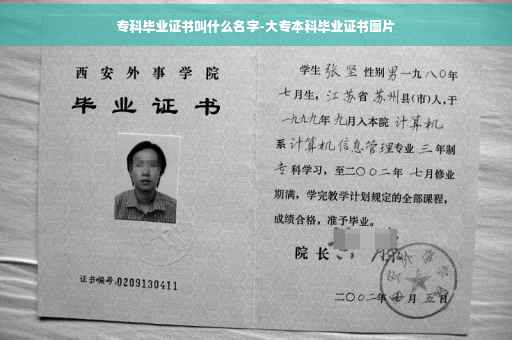 专科毕业证书叫什么名字-大专本科毕业证书图片
西安外事学院
毕业证书
证书编号:0209130411
学生张坚性别男一九八〇年
七月生,江苏省苏州县(市)人,于
一九九九年九月入本院计算机
系计算机信息管理专业三年制
专科学习,至二〇〇二年七月修业
期满,学完教学计划规定的全部课程,
成绩合格,准予毕业。
院长
二〇〇二年七月五日